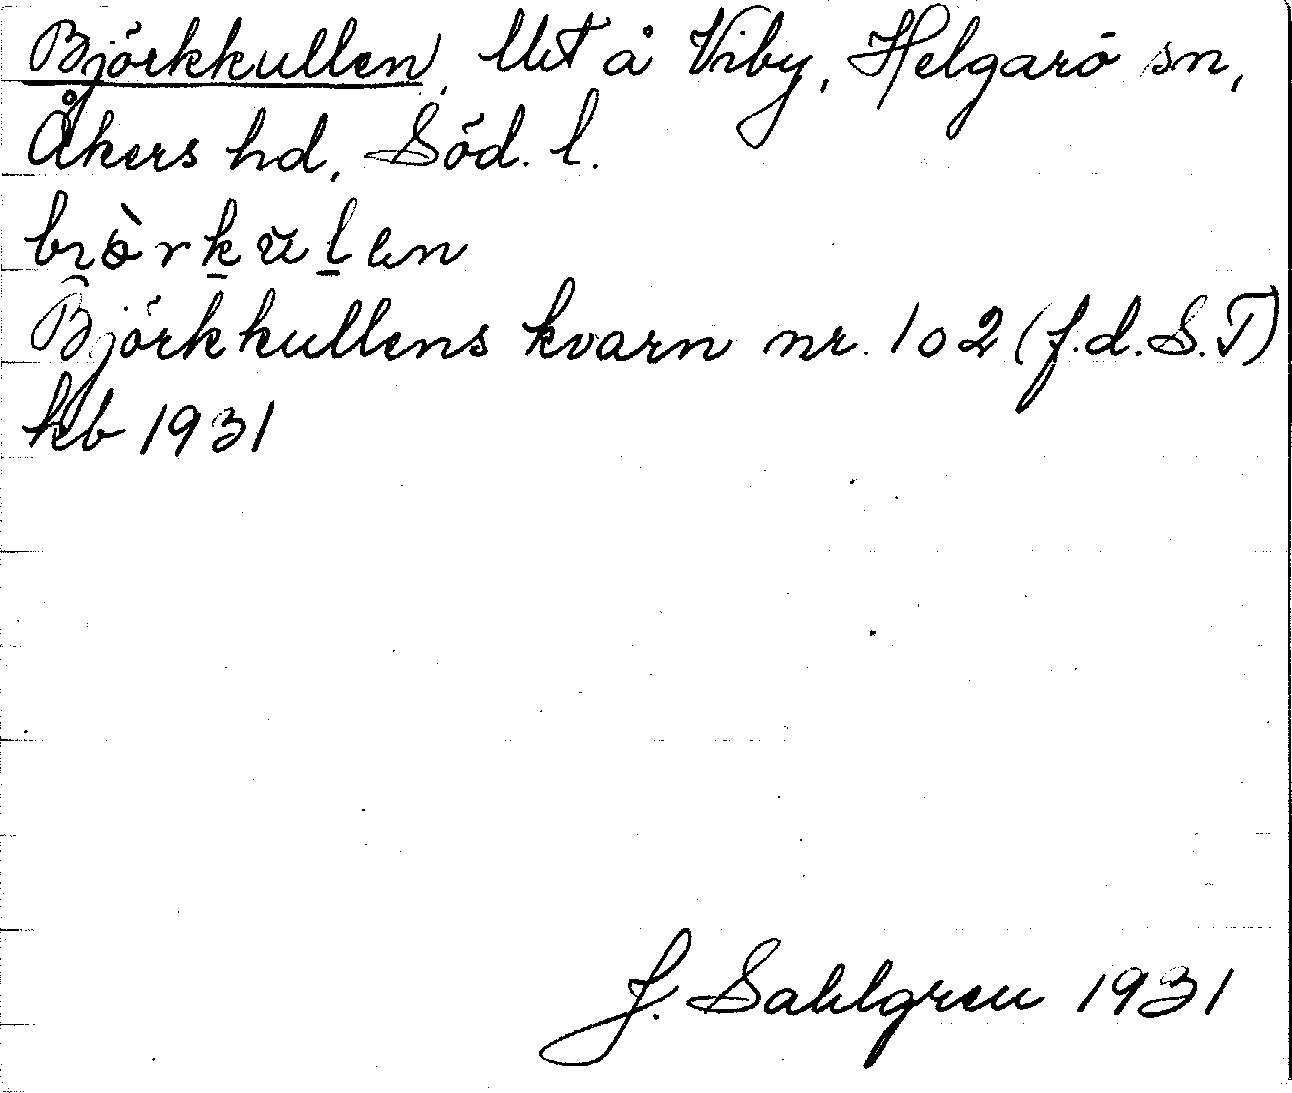 Björkkullen, lht å Viby, Helgarö sn,
Åkers hd, Söd. l.
Björkkullens kvarn nr. 102 (f.d. S.T)
kb 1931
J. Sahlgren 1931